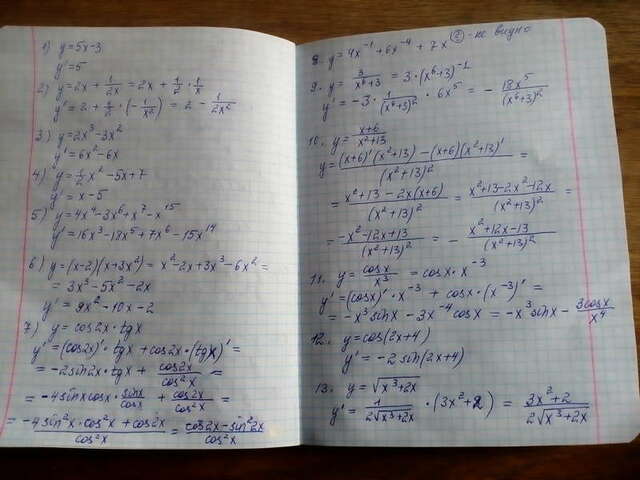 1) y=5x-3
y'=5
2) y=2x+1/2x=2x+1/2·1/x
y'=2+1/2·(-1/x²)=2-1/2x²
3) y=2x³-3x²
y'=6x²-6x
4) y=1/2x²-5x+7
y'=x-5
5) y=4x⁴-3x⁶+x⁷-x¹⁵
y'=16x³-18x⁵+7x⁶-15x¹⁴
6) y=(x-2)(x+3x²)=x²-2x+3x³-6x²=
=3x³-5x²-2x
y'=9x²-10x-2
7) y=cos2x·tgx
y'=(cos2x)'·tgx+cos2x·(tgx)'=
=-2sin2x·tgx+cos2x/cos²x=
=-4sinxcosx·sinx/cosx+cos2x/cos²x=
=-4sin²x·cos²x+cos2x/cos²x=cos2x-sin²2x/cos²x
8. y=4x⁻¹+6x⁻⁴+7x^(?)-не видно
9. y=3/x⁶+3=3·(x⁶+3)⁻¹
y'=-3·1/(x⁶+3)²·6x⁵=-18x⁵/(x⁶+3)²
10. y=x+6/x²+13
y=(x+6)'(x²+13)-(x+6)(x²+13)'/(x²+13)²=
=x²+13-2x(x+6)/(x²+13)²=x²+13-2x²-12x/(x²+13)²=
=-x²-12x+13/(x²+13)²=-x²+12x-13/(x²+13)²
11. y=cosx/x³=cosx·x⁻³
y'=(cosx)'·x⁻³+cosx·(x⁻³)'=
=-x³sinx-3x⁻⁴cosx=-x³sinx-3cosx/x⁴
12. y=cos(2x+4)
y'=-2sin(2x+4)
13. y=√x³+2x
y'=1/2√x³+2x·(3x²+2)=3x²+2/2√x³+2x